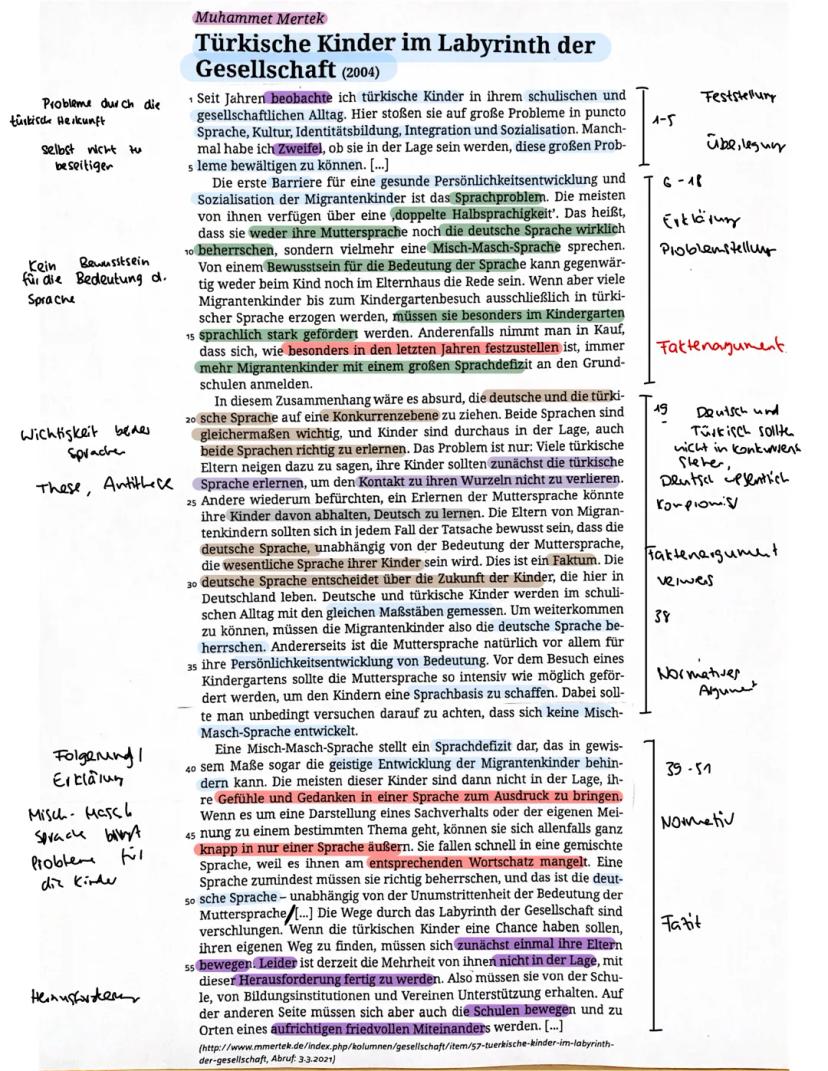 Muhammet Mertek
Türkische Kinder im Labyrinth der
Gesellschaft (2004)
1 Seit Jahren beobachte ich türkische Kinder in ihrem schulischen und
gesellschaftlichen Alltag. Hier stoßen sie auf große Probleme in puncto
Sprache, Kultur, Identitätsbildung, Integration und Sozialisation. Manch-
mal habe ich Zweifel, ob sie in der Lage sein werden, diese großen Prob-
5 leme bewältigen zu können. [...]
Die erste Barriere für eine gesunde Persönlichkeitsentwicklung und
Sozialisation der Migrantenkinder ist das Sprachproblem. Die meisten
von ihnen verfügen über eine ‚doppelte Halbsprachigkeit'. Das heißt,
dass sie weder ihre Muttersprache noch die deutsche Sprache wirklich
10 beherrschen, sondern vielmehr eine Misch-Masch-Sprache sprechen.
Von einem Bewusstsein für die Bedeutung der Sprache kann gegenwär-
tig weder beim Kind noch im Elternhaus die Rede sein. Wenn aber viele
Migrantenkinder bis zum Kindergartenbesuch ausschließlich in türki-
scher Sprache erzogen werden, müssen sie besonders im Kindergarten
15 sprachlich stark gefördert werden. Anderenfalls nimmt man in Kauf,
dass sich, wie besonders in den letzten Jahren festzustellen ist, immer
mehr Migrantenkinder mit einem großen Sprachdefizit an den Grund-
schulen anmelden.
In diesem Zusammenhang wäre es absurd, die deutsche und die türki-
20 sche Sprache auf eine Konkurrenzebene zu ziehen. Beide Sprachen sind
gleichermaßen wichtig, und Kinder sind durchaus in der Lage, auch
beide Sprachen richtig zu erlernen. Das Problem ist nur: Viele türkische
Eltern neigen dazu zu sagen, ihre Kinder sollten zunächst die türkische
Sprache erlernen, um den Kontakt zu ihren Wurzeln nicht zu verlieren.
25 Andere wiederum befürchten, ein Erlernen der Muttersprache könnte
ihre Kinder davon abhalten, Deutsch zu lernen. Die Eltern von Migran-
tenkindern sollten sich in jedem Fall der Tatsache bewusst sein, dass die
deutsche Sprache, unabhängig von der Bedeutung der Muttersprache,
die wesentliche Sprache ihrer Kinder sein wird. Dies ist ein Faktum. Die
30 deutsche Sprache entscheidet über die Zukunft der Kinder, die hier in
Deutschland leben. Deutsche und türkische Kinder werden im schuli-
schen Alltag mit den gleichen Maßstäben gemessen. Um weiterkommen
zu können, müssen die Migrantenkinder also die deutsche Sprache be-
herrschen. Andererseits ist die Muttersprache natürlich vor allem für
35 ihre Persönlichkeitsentwicklung von Bedeutung. Vor dem Besuch eines
Kindergartens sollte die Muttersprache so intensiv wie möglich geför-
dert werden, um den Kindern eine Sprachbasis zu schaffen. Dabei soll-
te man unbedingt versuchen darauf zu achten, dass sich keine Misch-
Masch-Sprache entwickelt.
Eine Misch-Masch-Sprache stellt ein Sprachdefizit dar, das in gewis-
40 sem Maße sogar die geistige Entwicklung der Migrantenkinder behin-
dern kann. Die meisten dieser Kinder sind dann nicht in der Lage, ih-
re Gefühle und Gedanken in einer Sprache zum Ausdruck zu bringen.
Wenn es um eine Darstellung eines Sachverhalts oder der eigenen Mei-
45 nung zu einem bestimmten Thema geht, können sie sich allenfalls ganz
knapp in nur einer Sprache äußern. Sie fallen schnell in eine gemischte
Sprache, weil es ihnen am entsprechenden Wortschatz mangelt. Eine
Sprache zumindest müssen sie richtig beherrschen, und das ist die deut-
50 sche Sprache – unabhängig von der Unumstrittenheit der Bedeutung der
Muttersprache/[...] Die Wege durch das Labyrinth der Gesellschaft sind
verschlungen. Wenn die türkischen Kinder eine Chance haben sollen,
ihren eigenen Weg zu finden, müssen sich zunächst einmal ihre Eltern
55 bewegen. Leider ist derzeit die Mehrheit von ihnen nicht in der Lage, mit
dieser Herausforderung fertig zu werden. Also müssen sie von der Schu-
le, von Bildungsinstitutionen und Vereinen Unterstützung erhalten. Auf
der anderen Seite müssen sich aber auch die Schulen bewegen und zu
Orten eines aufrichtigen friedvollen Miteinanders werden. [...]
(http://www.mmertek.de/index.php/kolumnen/gesellschaft/item/57-tuerkische-kinder-im-labyrinth-
der-gesellschaft, Abruf: 3.3.2021)
Probleme durch die
türkische Herkunft
selbst nicht zu
beseitigen
Kein Bewusstsein
für die Bedeutung d.
Sprache
Wichtigkeit beider
Sprachen
These, Antithese
Folgerung /
Erklärung
Misch-Masch
Sprache bringt
Probleme für
die Kinder
Feststellung
1-5
Überlegung
6 - 18
Erklärung
Problemstellung
Faktenargument
19
Deutsch und
Türkisch sollte
nicht in Konkurrenz
stehen,
Deutsch
Kompromiss
Faktenargument
verweis
38
Normatives
Argument
39 - 51
Normativ
Fazit